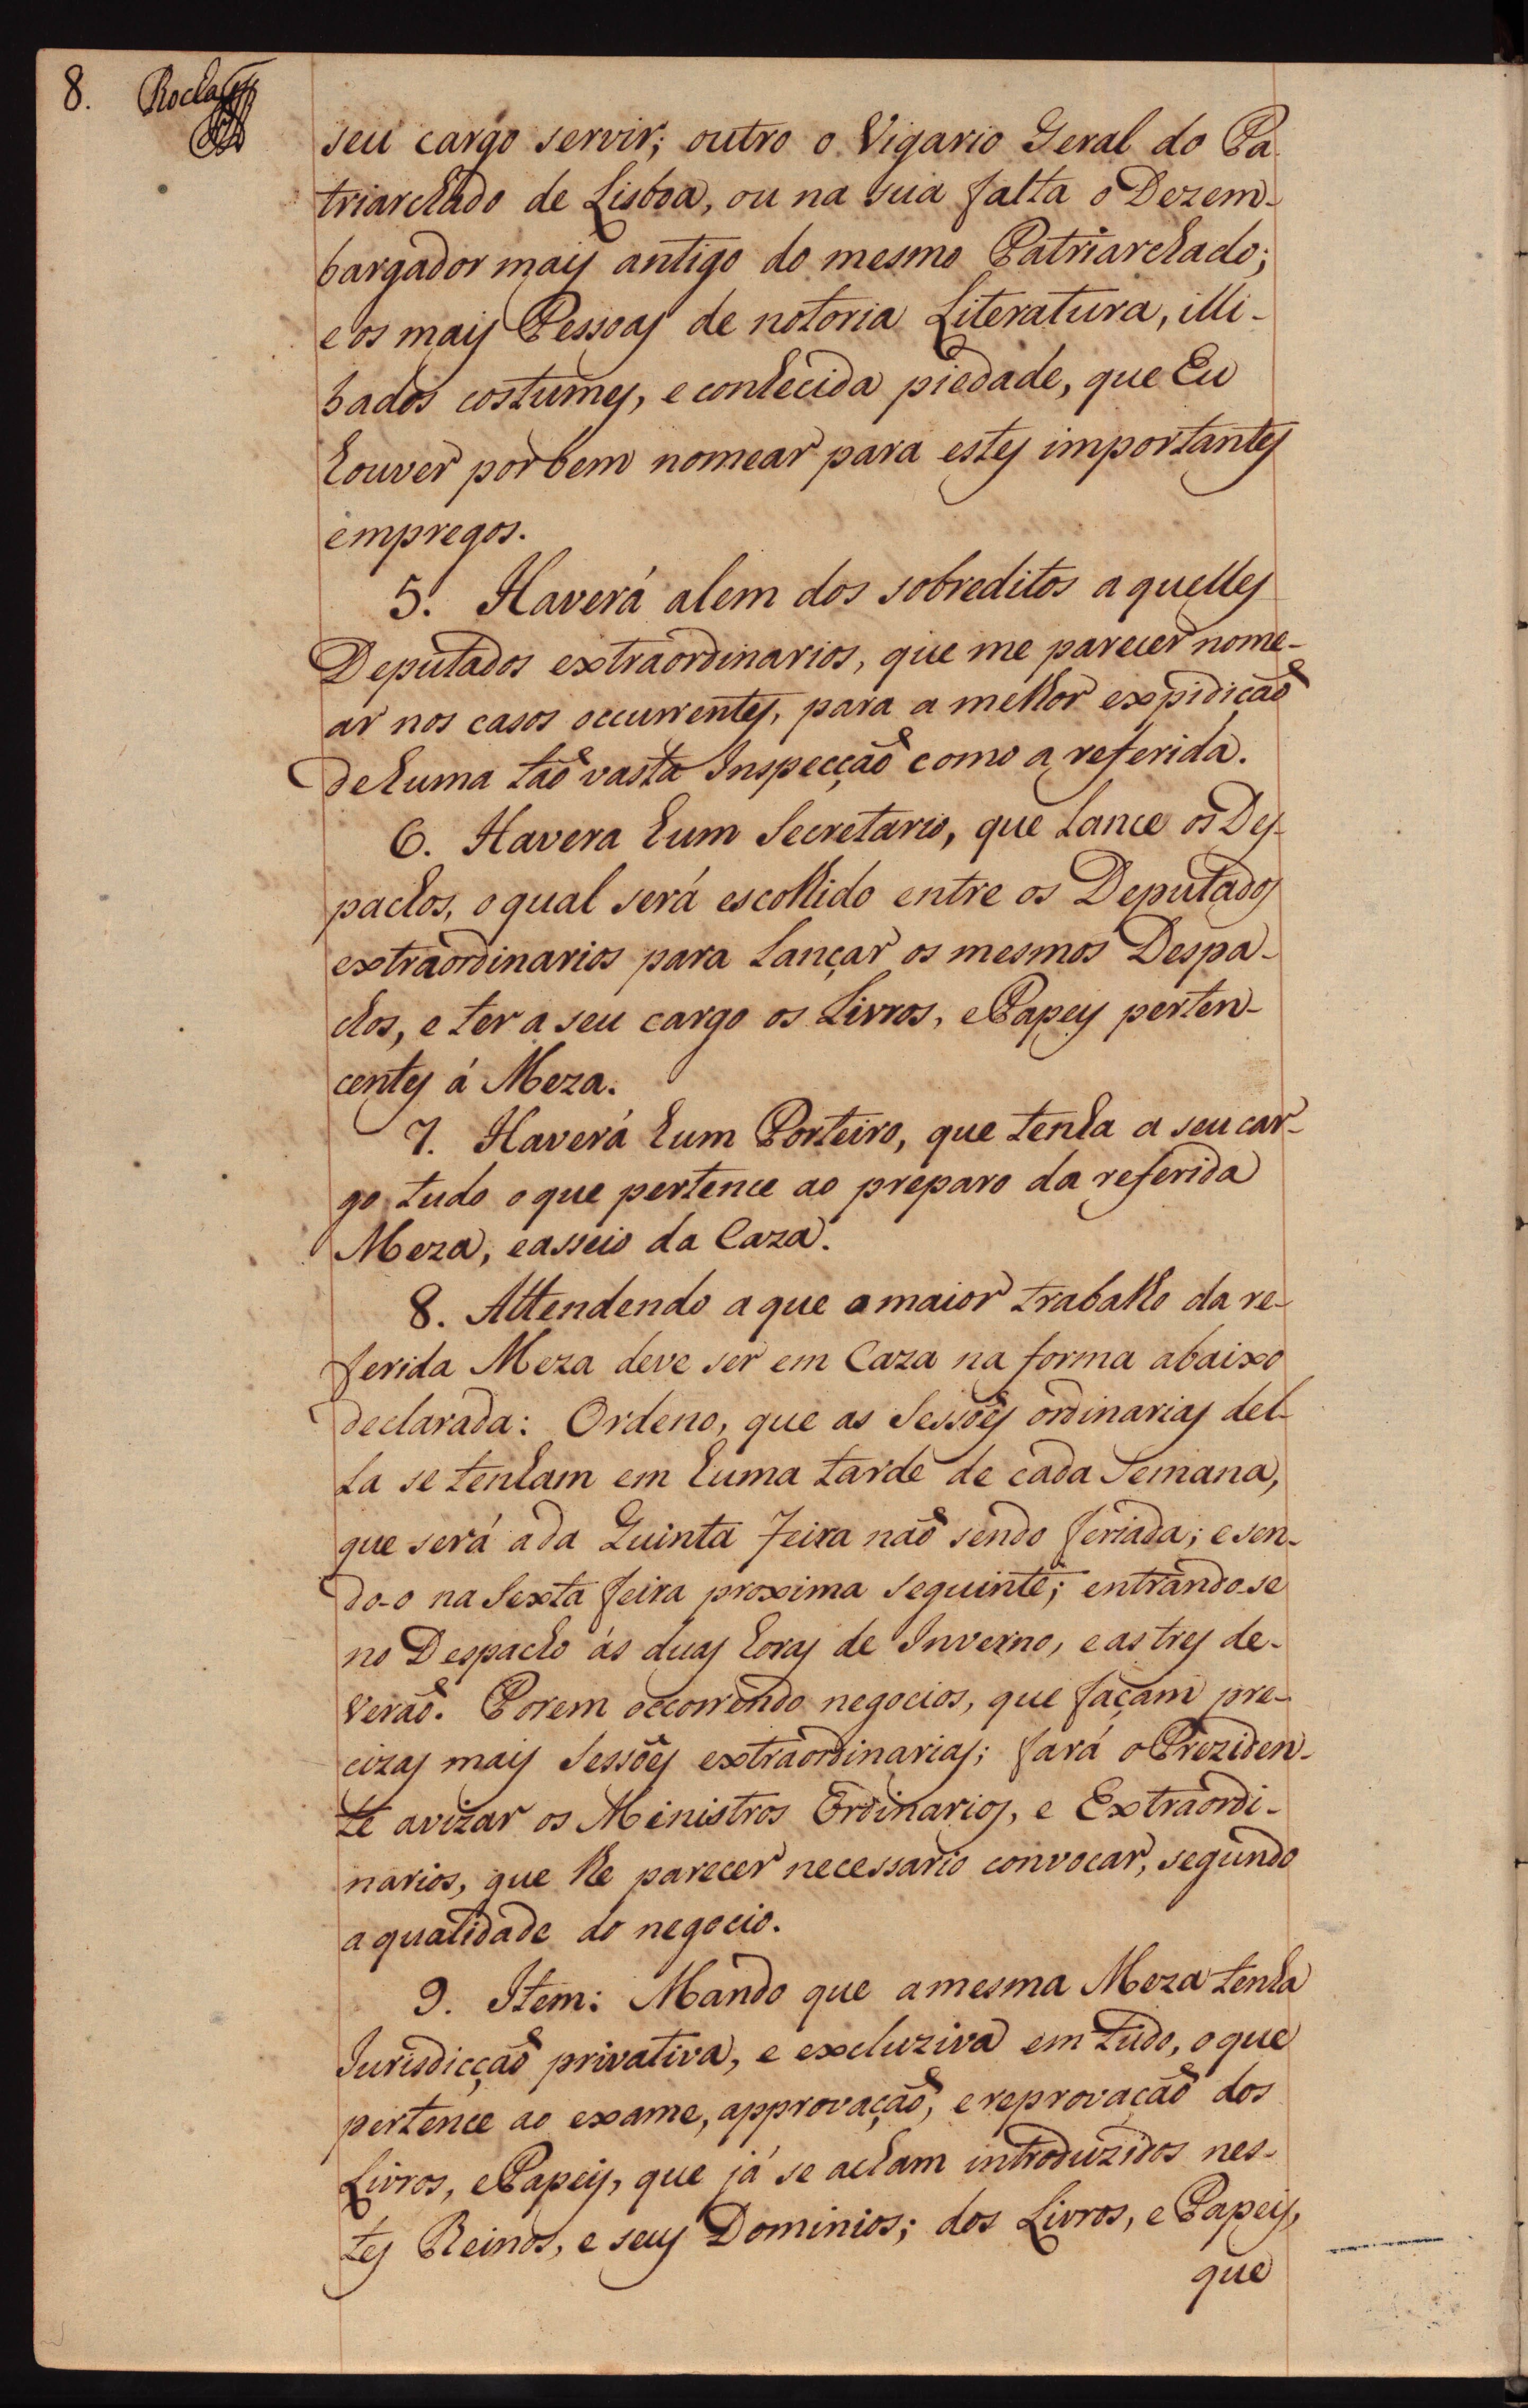 8. Rocha
seu cargo servir; outro o Vigario Geral do Pa-
triarchado de Lisboa, ou na sua falta o Dezem-
bargador mais antigo do mesmo Patriarchado;
e os mais Pessoas de notoria Literatura, illi-
bados costumes, e conhecida piedade, que Eu
houver por bem nomear para estes importantes
empregos.
5. Haverá alem dos sobreditos aquelles
Deputados extraordinarios, que me parecer nome-
ar nos casos occurrentes, para a melhor expidição
de huma tão vasta Inspecção como a referida.
6. Havera hum Secretario, que lance os Des-
pachos, o qual será escolhido entre os Deputados
extraordinarios para lançar os mesmos Despa-
chos, e ter a seu cargo os Livros, e Papeis perten-
centes á Meza.
7. Haverá hum Porteiro, que tenha a seu car-
go tudo o que pertence ao preparo da referida
Meza, e asseio da Caza.
8. Attendendo a que o maior trabalho da re-
ferida Meza deve ser em Caza na forma abaixo
declarada: Ordeno, que as Sessões ordinarias del-
la se tenham em huma tarde de cada Semana,
que será a da Quinta Feira não sendo feriada; e sen-
do-o na Sexta feira proxima seguinte; entrando-se
no Despacho ás duas horas de Inverno, e as tres de-
Verão. Porem occorrendo negocios, que façam pre-
cizas mais Sessões extraordinarias; fará o Preziden-
te avizar os Ministros Ordinarios, e Extraordi-
narios, que lhe parecer necessario convocar, segundo
a qualidade do negocio.
9. Item: Mando que a mesma Meza tenha
Jurisdicção privativa, e excluziva em tudo, o que
pertence ao exame, approvação, e reprovação dos
Livros, e Papeis, que já se acham introduzidos nes-
tes Reinos, e seus Dominios; dos Livros, e Papeis,
que